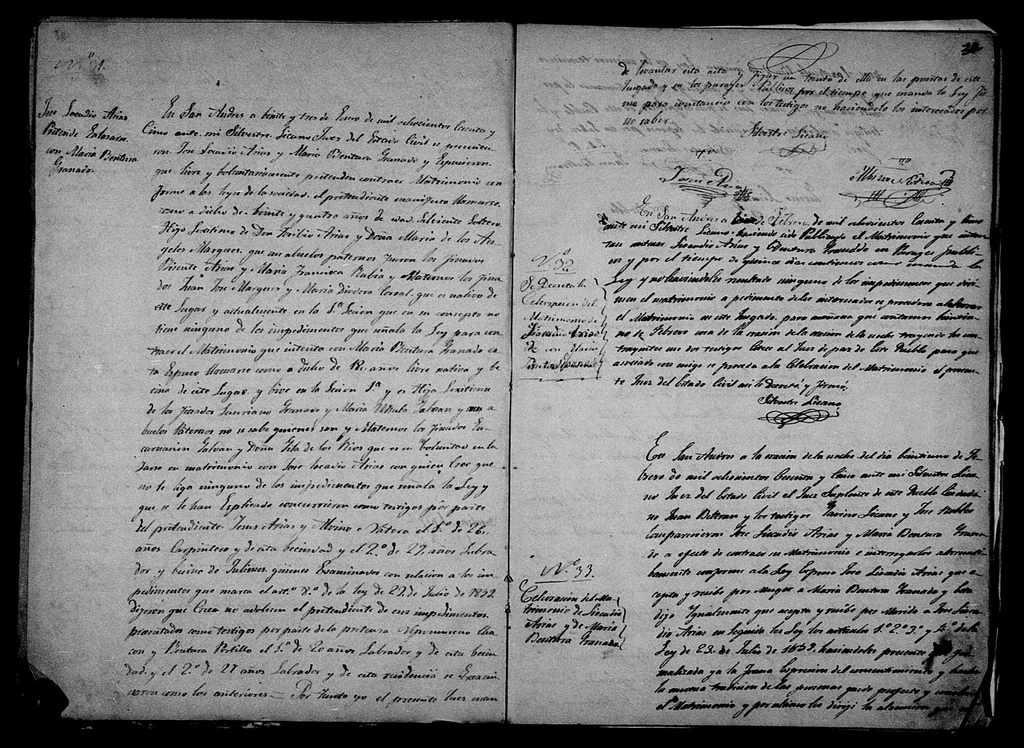 Nº 31.
Jose Locadio Arias
Pretende Enlasarse
con Maria Bentura
Granado.
En San Andres a beinte y tres de Enero de mil ochocientos Cecenta y
Cinco ante mi Silvestre Licano Juez del Estado Civil se presentaron
Jose Locadio Arias y Maria Bentura Granado y Espusieron
que livre y boluntariamente pretenden contraer Matrimonio con
forme a las leyes de la
como a Julio de beinte y quatro años de edad Soltero
Hijo Lexitimo de Don Arias y Doña Maria de los An
geles Marques, que sus abuelos paternos fueron los finados
Vicente Arias y Maria Francisca Rubio y Maternos los fina
dos Juan Jose Marques y Maria Corral, que es nativo de
este Lugar y actualmente en la que en su concepto no
tiene ninguno de los impedimentos que señala la Ley para con
traer el Matrimonio que intenta con Maria Bentura Granado es
ta Espuso llamarse como a Julio de livre nativa y be
cina de este Lugar y bive en la y es Hija Lexitima
de los finados Granado y Maria Galvan y sus a
buelos Paternos no se sabe quienes son y Maternos los finados En
carnacion Galvan y Doña de los Rios que es su boluntad en la
sarse en matrimonio con Jose Locadio Arias con quien Cree que
no le liga ninguno de los impedimentos que señala la Ley y
que se le han Esplicado concurrieron como testigos por parte
del pretendiente Jesus Arias y Albino Valera el 1º de 26
años Carpintero y de esta becindad y el 2º de 29 años Labra
dor y becino de Julimes quienes Examinados con relacion a los im
pedimentos que marca el artº 8º de la ley de 23 de Julio de 1859
dijeron que Creen no adolecer el pretendiente de esos impedimentos
presentados como testigos por parte de la pretensa Nepomuceno Cha
con y Bentura Portillo el 1º de 20 años Labrador y de esta becin
dad, y el 2º de 27 años Labrador y de esta residencia se Exsami
naron como los anteriores — Por tanto yo el presente Juez
de levantar esta acta y fijar un tanto de ella en las puertas de este
Juzgado y en los parages Publicos por el tiempo que manda la Ley
para constancia con los testigos no haciendolo los interesados por
no saber.
Silvestre Licano
Nº 32
Se Decreta la
Celebracion del
Matrimonio de
Locadio Arias
con Maria
Bentura Granado
En San Andres de Febrero de mil ochocientos Cecenta y Cinco
ante mi Silvestre Licano haviendo sido Publicado el Matrimonio que inten
tan Locadio Arias y Bentura Granado en los Parages publi
cos y por el tiempo de quince dias continuos como manda la
Ley y no haviendoles resultado ninguno de los impedimentos que diri
men el matrimonio a pedimento de los interesados se procedera a la
el Matrimonio en este Juzgado para mañana que contamos
no de Febrero a la oracion de la noche trayendo los con
trayentes sus dos testigos Citese al Juez de paz de este Pueblo para que
asociado con migo se proceda a la Celebracion del Matrimonio el presen
te Juez del Estado Civil asi lo Decretó y firmó.
Silvestre Licano
Nº 33.
Celebracion del Ma
trimonio de Locadio
Arias y de Maria
Bentura Granado
En San Andres a la oracion de la noche del dia beintiuno de Fe
brero de mil ochocientos Cecenta y Cinco ante mi Silvestre Lica
no Juez del Estado Civil el Juez Suplente de este Pueblo Ciudada
no Juan Beltran y los testigos Licano y Jose Robles
Comparecieron Jose Locadio Arias y Maria Bentura Grana
do a efecto de contraer su Matrimonio e interrogados alternati
bamente conforme a la Ley Espreso Jose Locadio Arias que a
cepta y recibe por Muger a Maria Bentura Granado y Esta
dijo Igualmente que acepta y recibe por Marido a Jose Loca
dio Arias en seguida les los articulos 1º 2º 3º y 4º de la
Ley de 23 de Julio de 1859. haciendoles presente que for
malizada ya la franca Espresion del consentimiento y hecha
la mutua tradicion de las personas queda perfecto y concluido
el Matrimonio y por ultimo les dirigi la alocucion que